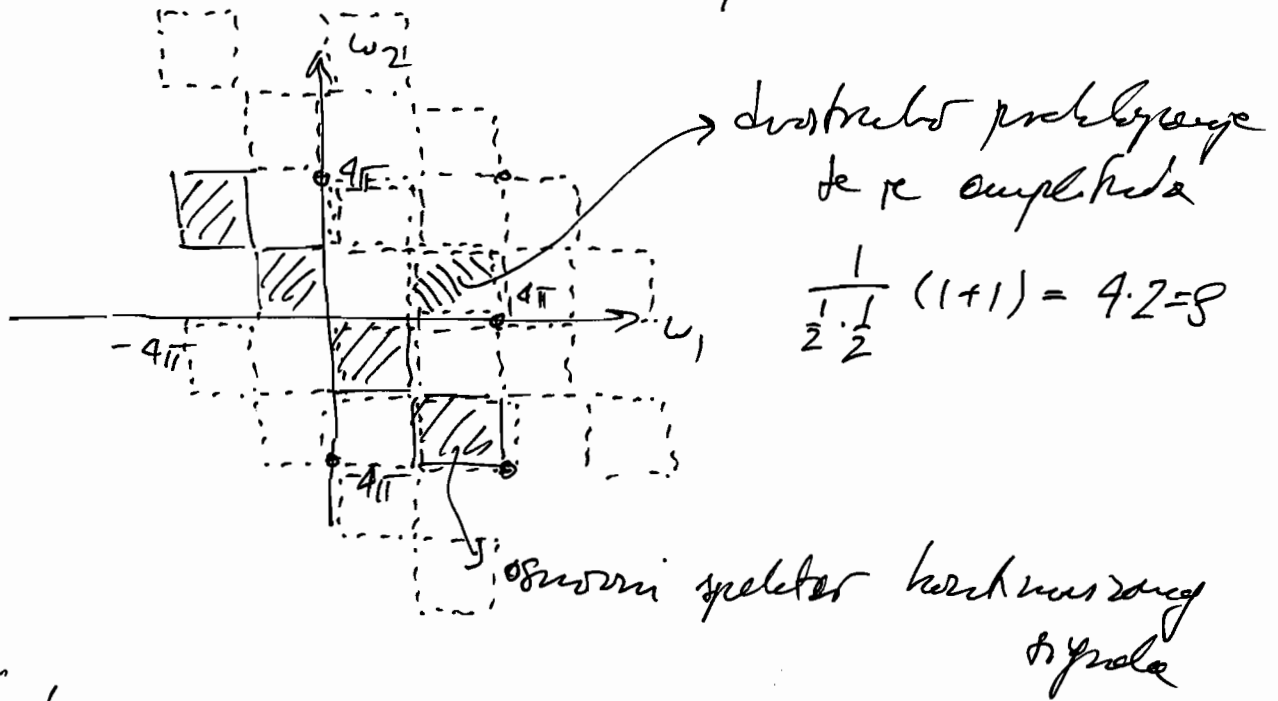 ω₂
4π
dvostruko preklapanje
te je amplituda
4π
-4π
ω₁
1/(1/2·1/2) (1+1) = 4·2=8
-4π
osnovni spektar kontinuiranog
signala